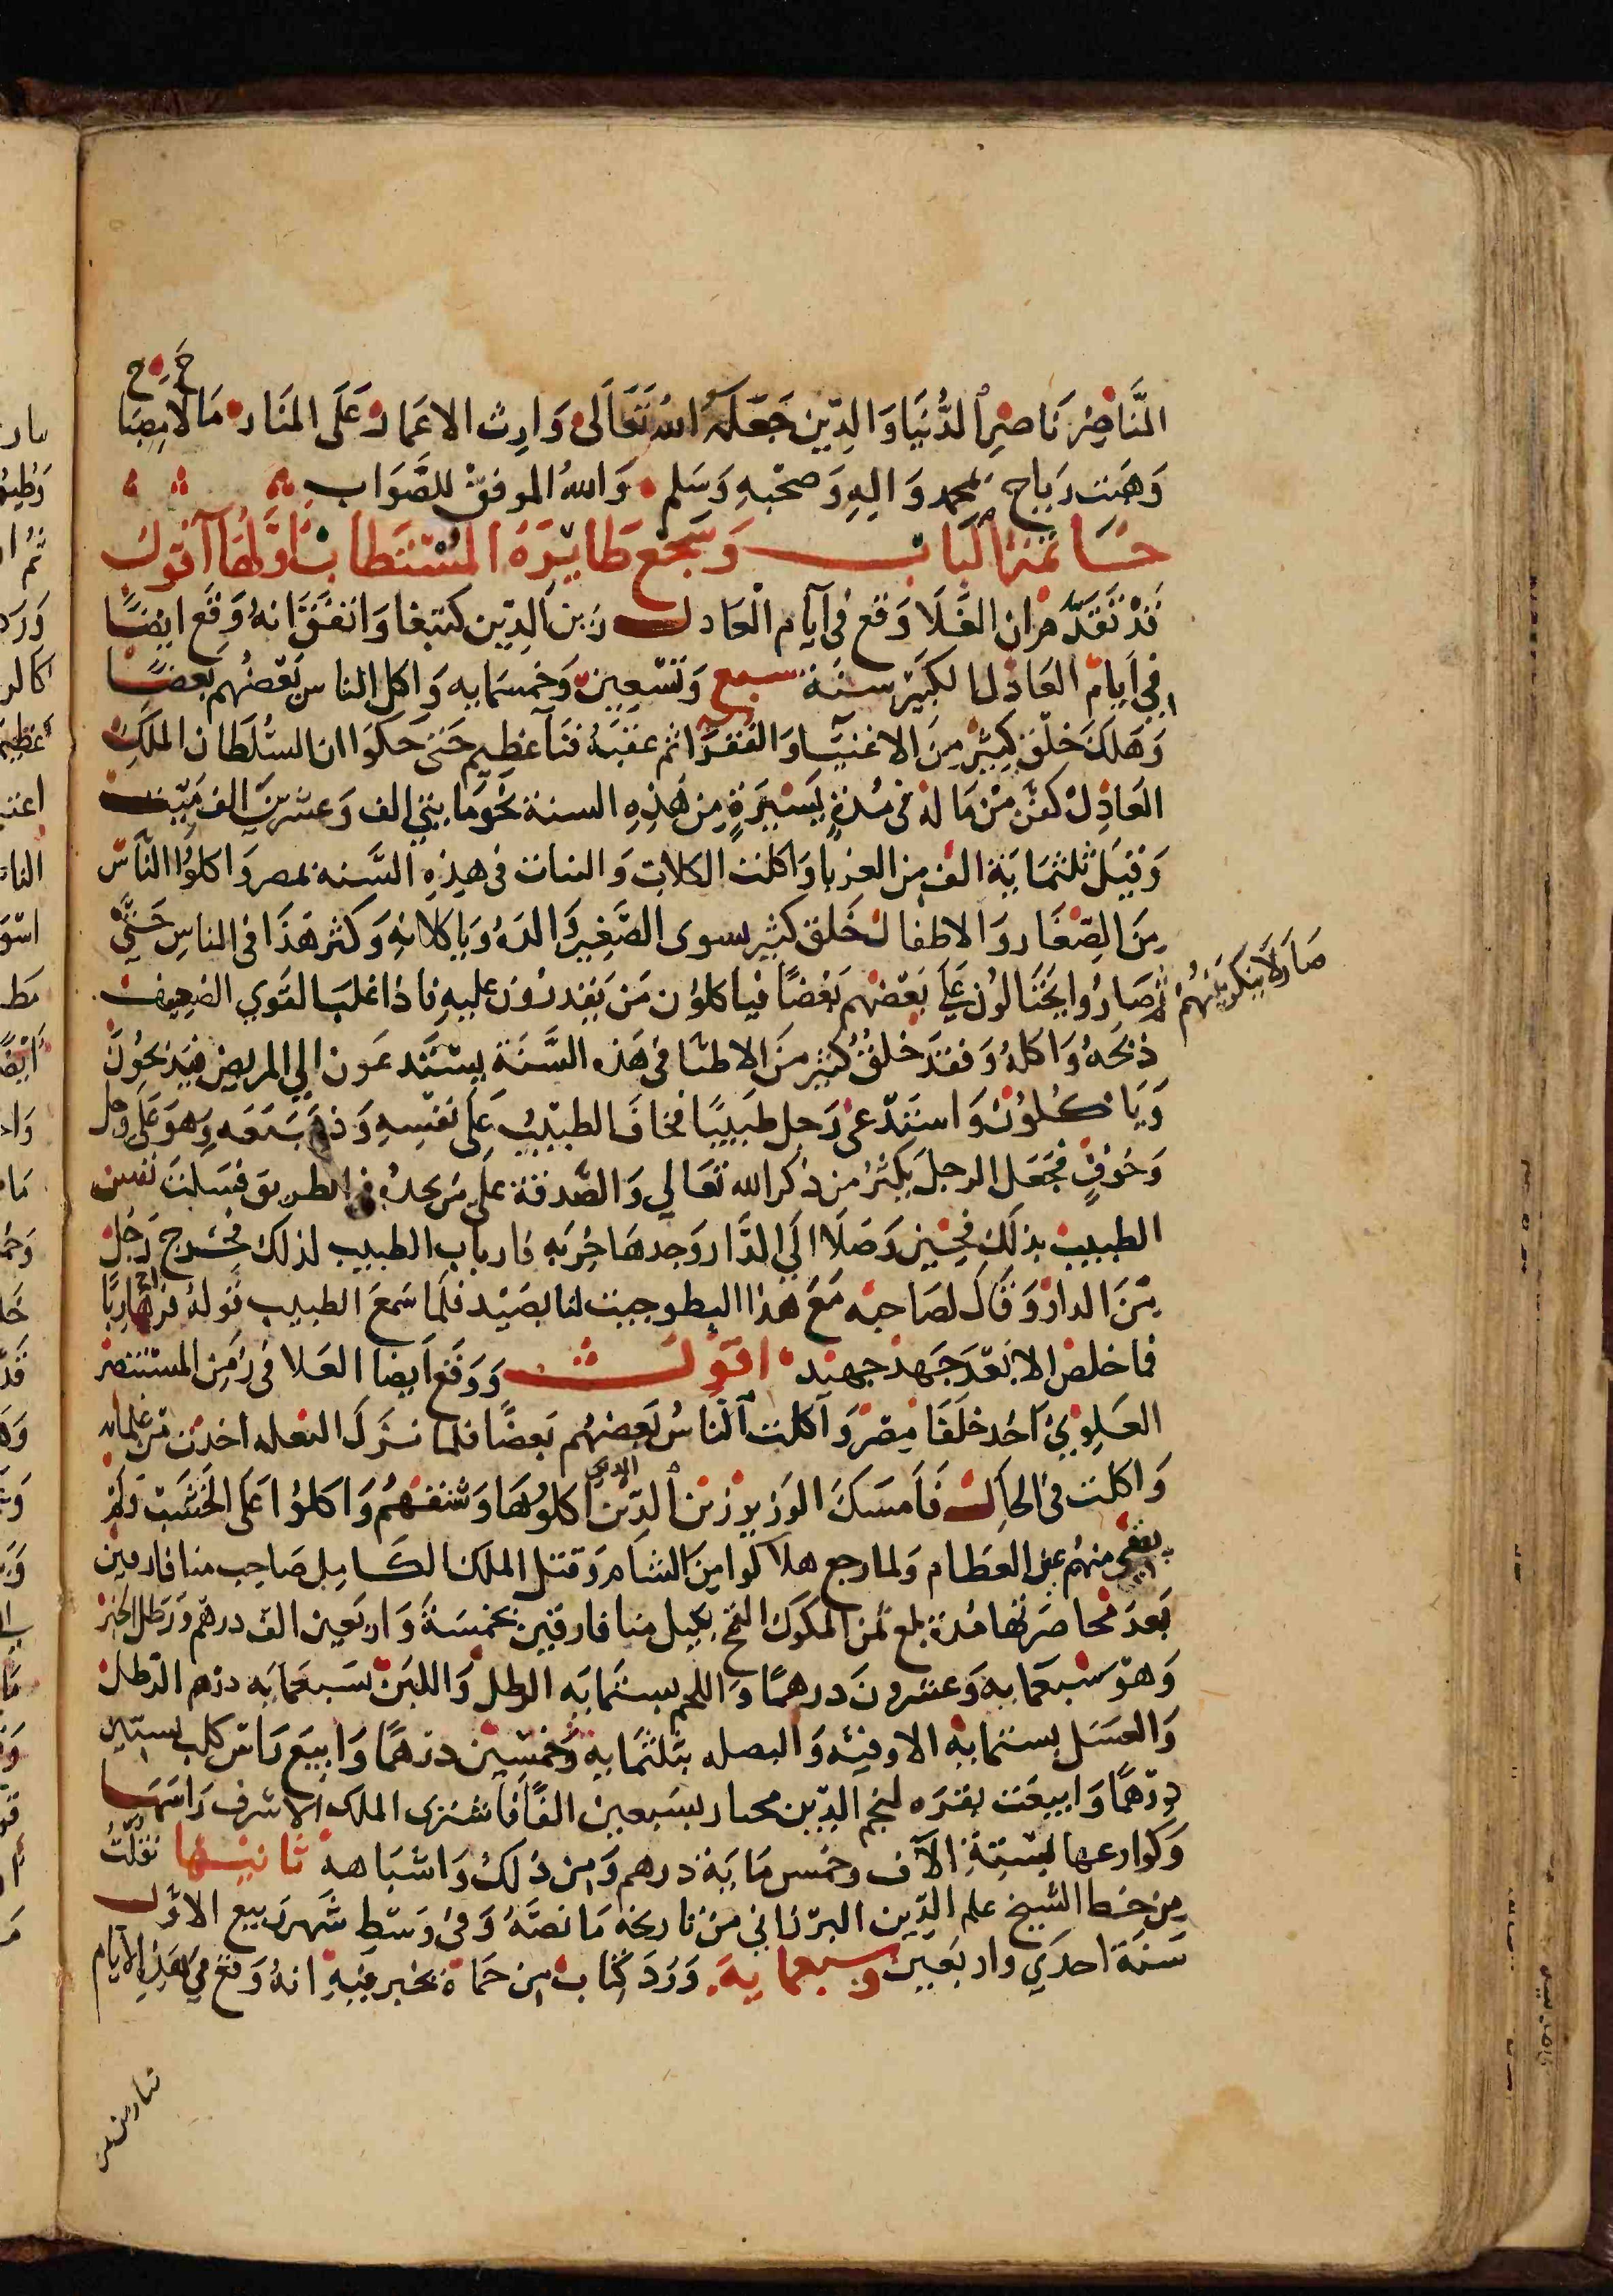 النَّاصِر نَاصِر الدُّنيَا وَالدِّين جَعَلَهُ اللهُ تَعَالَى وَارِث الاعمَار عَلَى المنَار مَا لاح مِصبَاح
وَهَبت رِيَاح بمحمد وَالِهِ وَصَحْبِهِ وَسَلم وَاللهُ الموفق للصَّوَاب
خَاتمة البَاب وَسَجْع طَايرَهُ المُسْتَطاب اوَّلهَا اقول
قَدْ تَقَدَّم ان الغَلَا وَقَع فى ايَام العَادل زين الدِّين كتبغا وَاتفَقَ انهُ وَقَع ايضًا
فى اَيَام العَادل الكبَير سنَة سبع وَتسْعِين وَخمسَمايه وَاكل الناس بَعْضُهم بَعضًا
وَهَلَكَ خلْق كثير مِنَ الاغنيَا وَالفقرَا ثم عقبَهُ فنَا عَظيم حَتى حَكَوا ان السُّلطَان الملك
العَادِل كفنَ مِنْ مَاله فى مُدةٍ يَسيرَةٍ مِن هَذِهِ السنة نَحْوَ مايتي الف وَعشرينَ الف مَيّت
وَقيلَ ثلثمَايَة الف من الغربا وَاكلت الكلاب وَالميتات فى هذِهِ السَّنه بمصر وَاكلوُا النَّاس
مِنَ الصِّغَار وَالاطفال خَلق كثير يسوى الصَّغير وَالدهُ وَيَاكلانِهِ وَكثر هَذَا فى الناسِ حَتَّى
صَارَ لاَ يُنكَر بَينَهُمْ
ثم صَارُوا يحتَالون عَلَى بَعْضهم بَعْضًا فيَاكلون مَن يَقدرُون عليهِ فَاذا غلبَ القوي الضعيف
ذبَحَهُ وَاكلهُ وَفقدَ خلقٌ كثير مِنَ الاطبَّا فى هَذه السَّنَة يسْتَدعَون الى المريض فيَذبحُونَ
وَيَاكلوُن وَاستَدْعى رَجل طَبيبًا فخافَ الطبيبُ عَلَى نفسِهِ وَذهَبَ مَعَه وَهوَ عَلَى وجل
وَخوفٍ فجَعَل الرجل يَكثرُ من ذكر الله تعَالى وَالصَّدقة عَلَى من يَجدهُ فى الطريق فسَكنت نفس
الطبيب بذلك فحِين وَصَلَا الَي الدَّار وَجدهَا خربه فارتاب الطبيب لذلك فخَرج رَجُل
مِنَ الدار وَقال لصَاحبه مَعَ هذا البطو جيت لنا بصَيْد فلَما سَمعَ الطبيب قولهُ فرَّ هَارِبًا
فما خلص الا بَعْدَ جَهد جهيد اقول وَوَقع اَيضا الغلا فى زمن المستنصر
العَلويّ احَد خلَفَا مِصْر وَاكلت النَّاسُ بَعضهُم بَعضًا فلما نزَل البغله اخذت من غلمانه
وَاكلت فى الحال فَاَمسَكَ الوَزير الذين اكلوُهَا وَشنقهُم وَاكلوُا عَلَى الخشَب وَلم
يبقَى منهُم غير العظام وَلما رجع هلاكوا مِنَ الشام وَقتل الملك الكَامِل صَاحِب ميافارقين
بَعدَ محَاصَرتها مُدة بلغ ثمن المكوك القمح بكيل ميافارقين بخمسَة وَاربَعين الف درهم وَرَطل الخبز
وَهوَ سَبعمَايه وَعشرونَ درهمًا وَاللحم بستمَايه الرطل وَاللبَن بسَبعمَايه درهم الرطل
وَالعسَل بستمايه الاوقيّه وَالبصله بثلثمايه وَخمسين درهمًا وَابيعَ رَاس كلب بستين
درهمًا وَابيعَت بقرَه لنجم الدِّين مختار بسَبعين الفًا فاشترى الملك الاشرف رَاسَهَا
وَكوارعها بستةِ الاَف وَخمس مَايَة درهم وَمِن ذلكَ وَاشبَاهه ثانيها نقلتُ
مِن خط الشيخ علم الدِّين البرزالي مِنْ تاريخه مَا نصَّهُ وَفى وَسَط شَهر رَبيع الاوَّل
سَنَة احدَي واربَعين وسبعمايه. وَرَدَ كتاب من حَمَاة يخبر فيهِ انهُ وَقع في هَذِه الاَيام